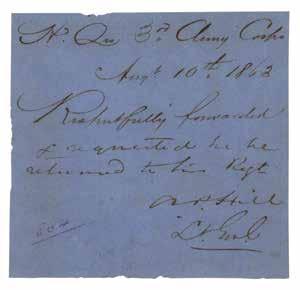 Hd Qrs 3rd Army Corps
Augt 10th 1863
Respectfully forwarded
& requested he be
returned to his Regt
A.P. Hill
Lt Genl